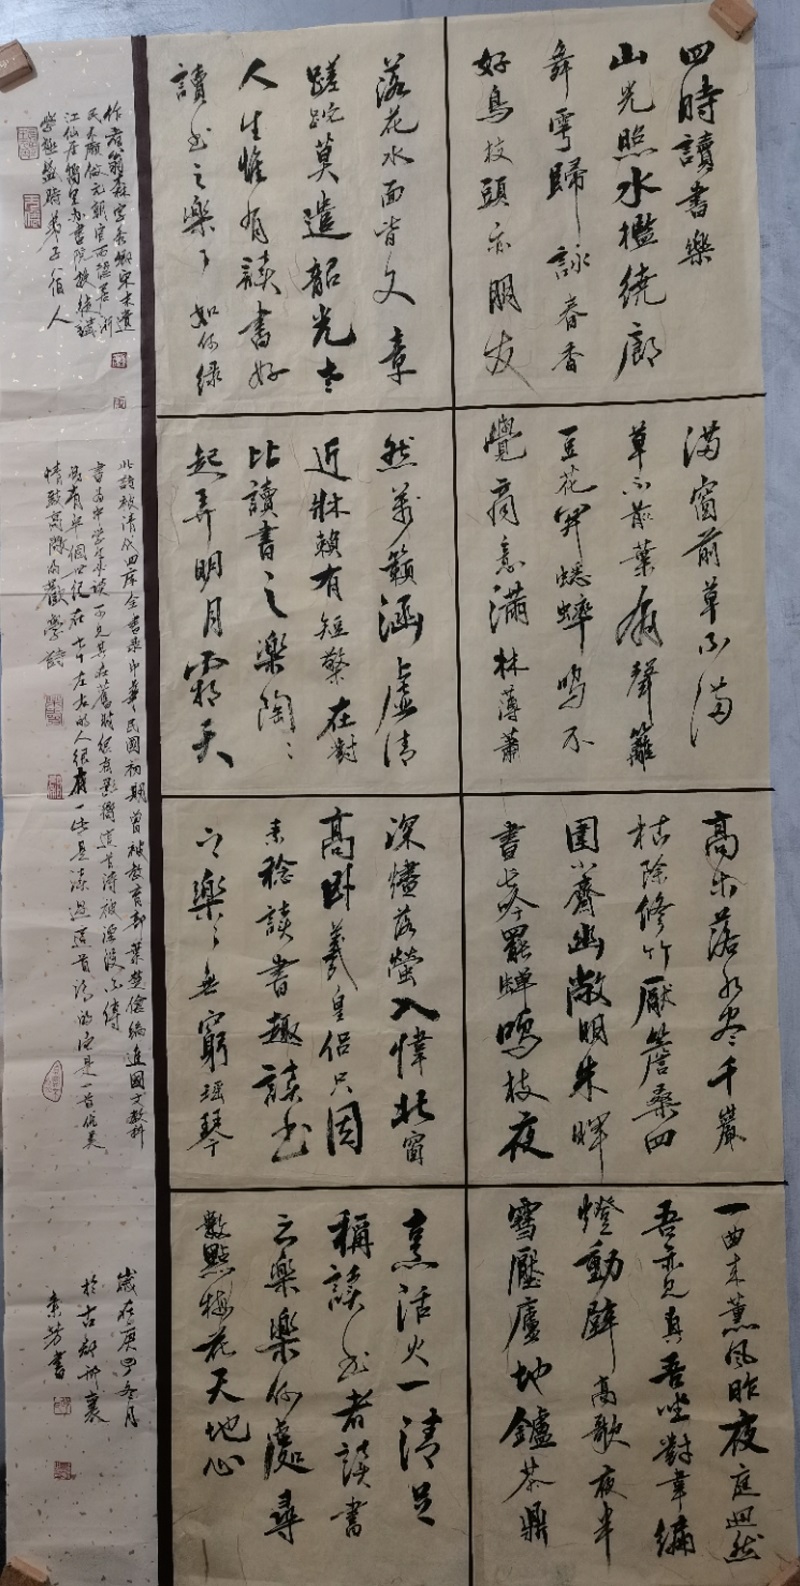 四時讀書樂
山光照水檻繞廊
舞雩歸詠春香
好鳥枝頭亦朋友
落花水面皆文章
蹉跎莫遣韶光老
人生惟有讀書好
讀書之樂々如何綠
滿窗前草不滿
草不前葉有聲籬
豆花開蟋蟀鳴不
覺商意滿林薄蕭
然萬籟涵虛清
近牀賴有短檠在對
比讀書之樂陶々
起弄明月霜天
高木落水盡千巖
枯除修竹壓簷桑四
圍小齋幽敞明朱暉
書長吟罷蟬鳴枝夜
深燼落螢入幃北窗
高卧羲皇侶只因
素稔讀書趣讀書
之樂々無窮瑤琴
一曲來薰風昨夜庭迴然
吾亦見真吾坐對韋編
燈動壁高歌夜半
雪壓廬地鑪茶鼎
烹活火一清足
稱讀書者讀書
之樂樂何處尋
數點梅花天地心
作者翁森字秀卿宋末遺
民不願做元朝官而隱居浙
江仙居獨皇亦書院教徒講
學極盛時弟子八百人
此詩被清代四庫全書錄印華民國初期曾被教育部葉楚傖編進國文教科
書為中學生必讀可見其在舊時很有影響這首詩被湮沒不傳
已有半個世紀在七十左右的人很有一些是讀過這首詩的它是一首優美
情致高際的勸學詩
歲在庚子冬月
於古
素芳書